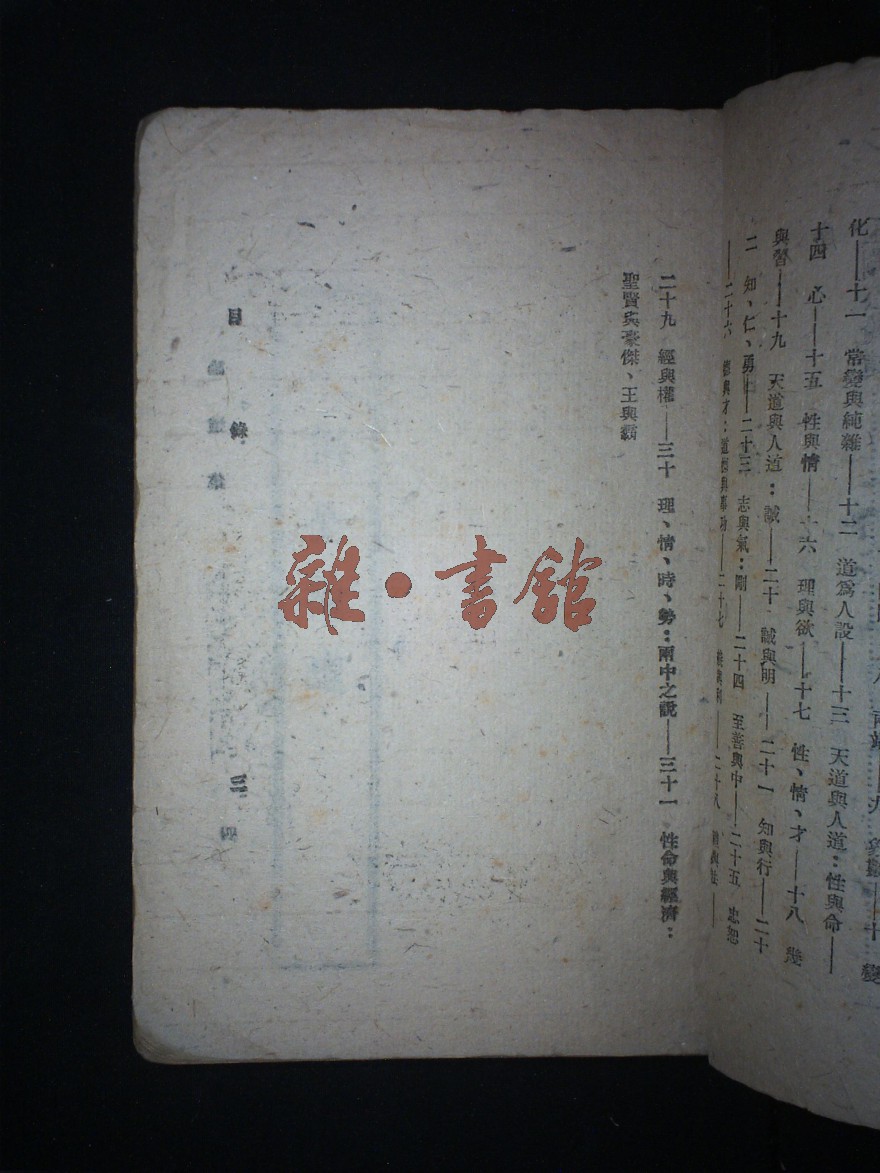 八
九 象數——十 變
化——十一 常變與純雜——十二 道爲人設——十三 天道與人道：性與命——
十四 心——十五 性與情——十六 理與欲——十七 性、情、才——十八 幾
與習——十九 天道與人道：誠——二十 誠與明——二十一 知與行——二十
二 知、仁、勇——二十三 志與氣：剛——二十四 至善與中——二十五 忠恕
——二十六 德與才：二十七 二十八
二十九 經與權——三十 理、情、時、勢：兩中之說——三十一 性命與經濟：
聖賢與豪傑、王與霸
目錄
三
雜·書館